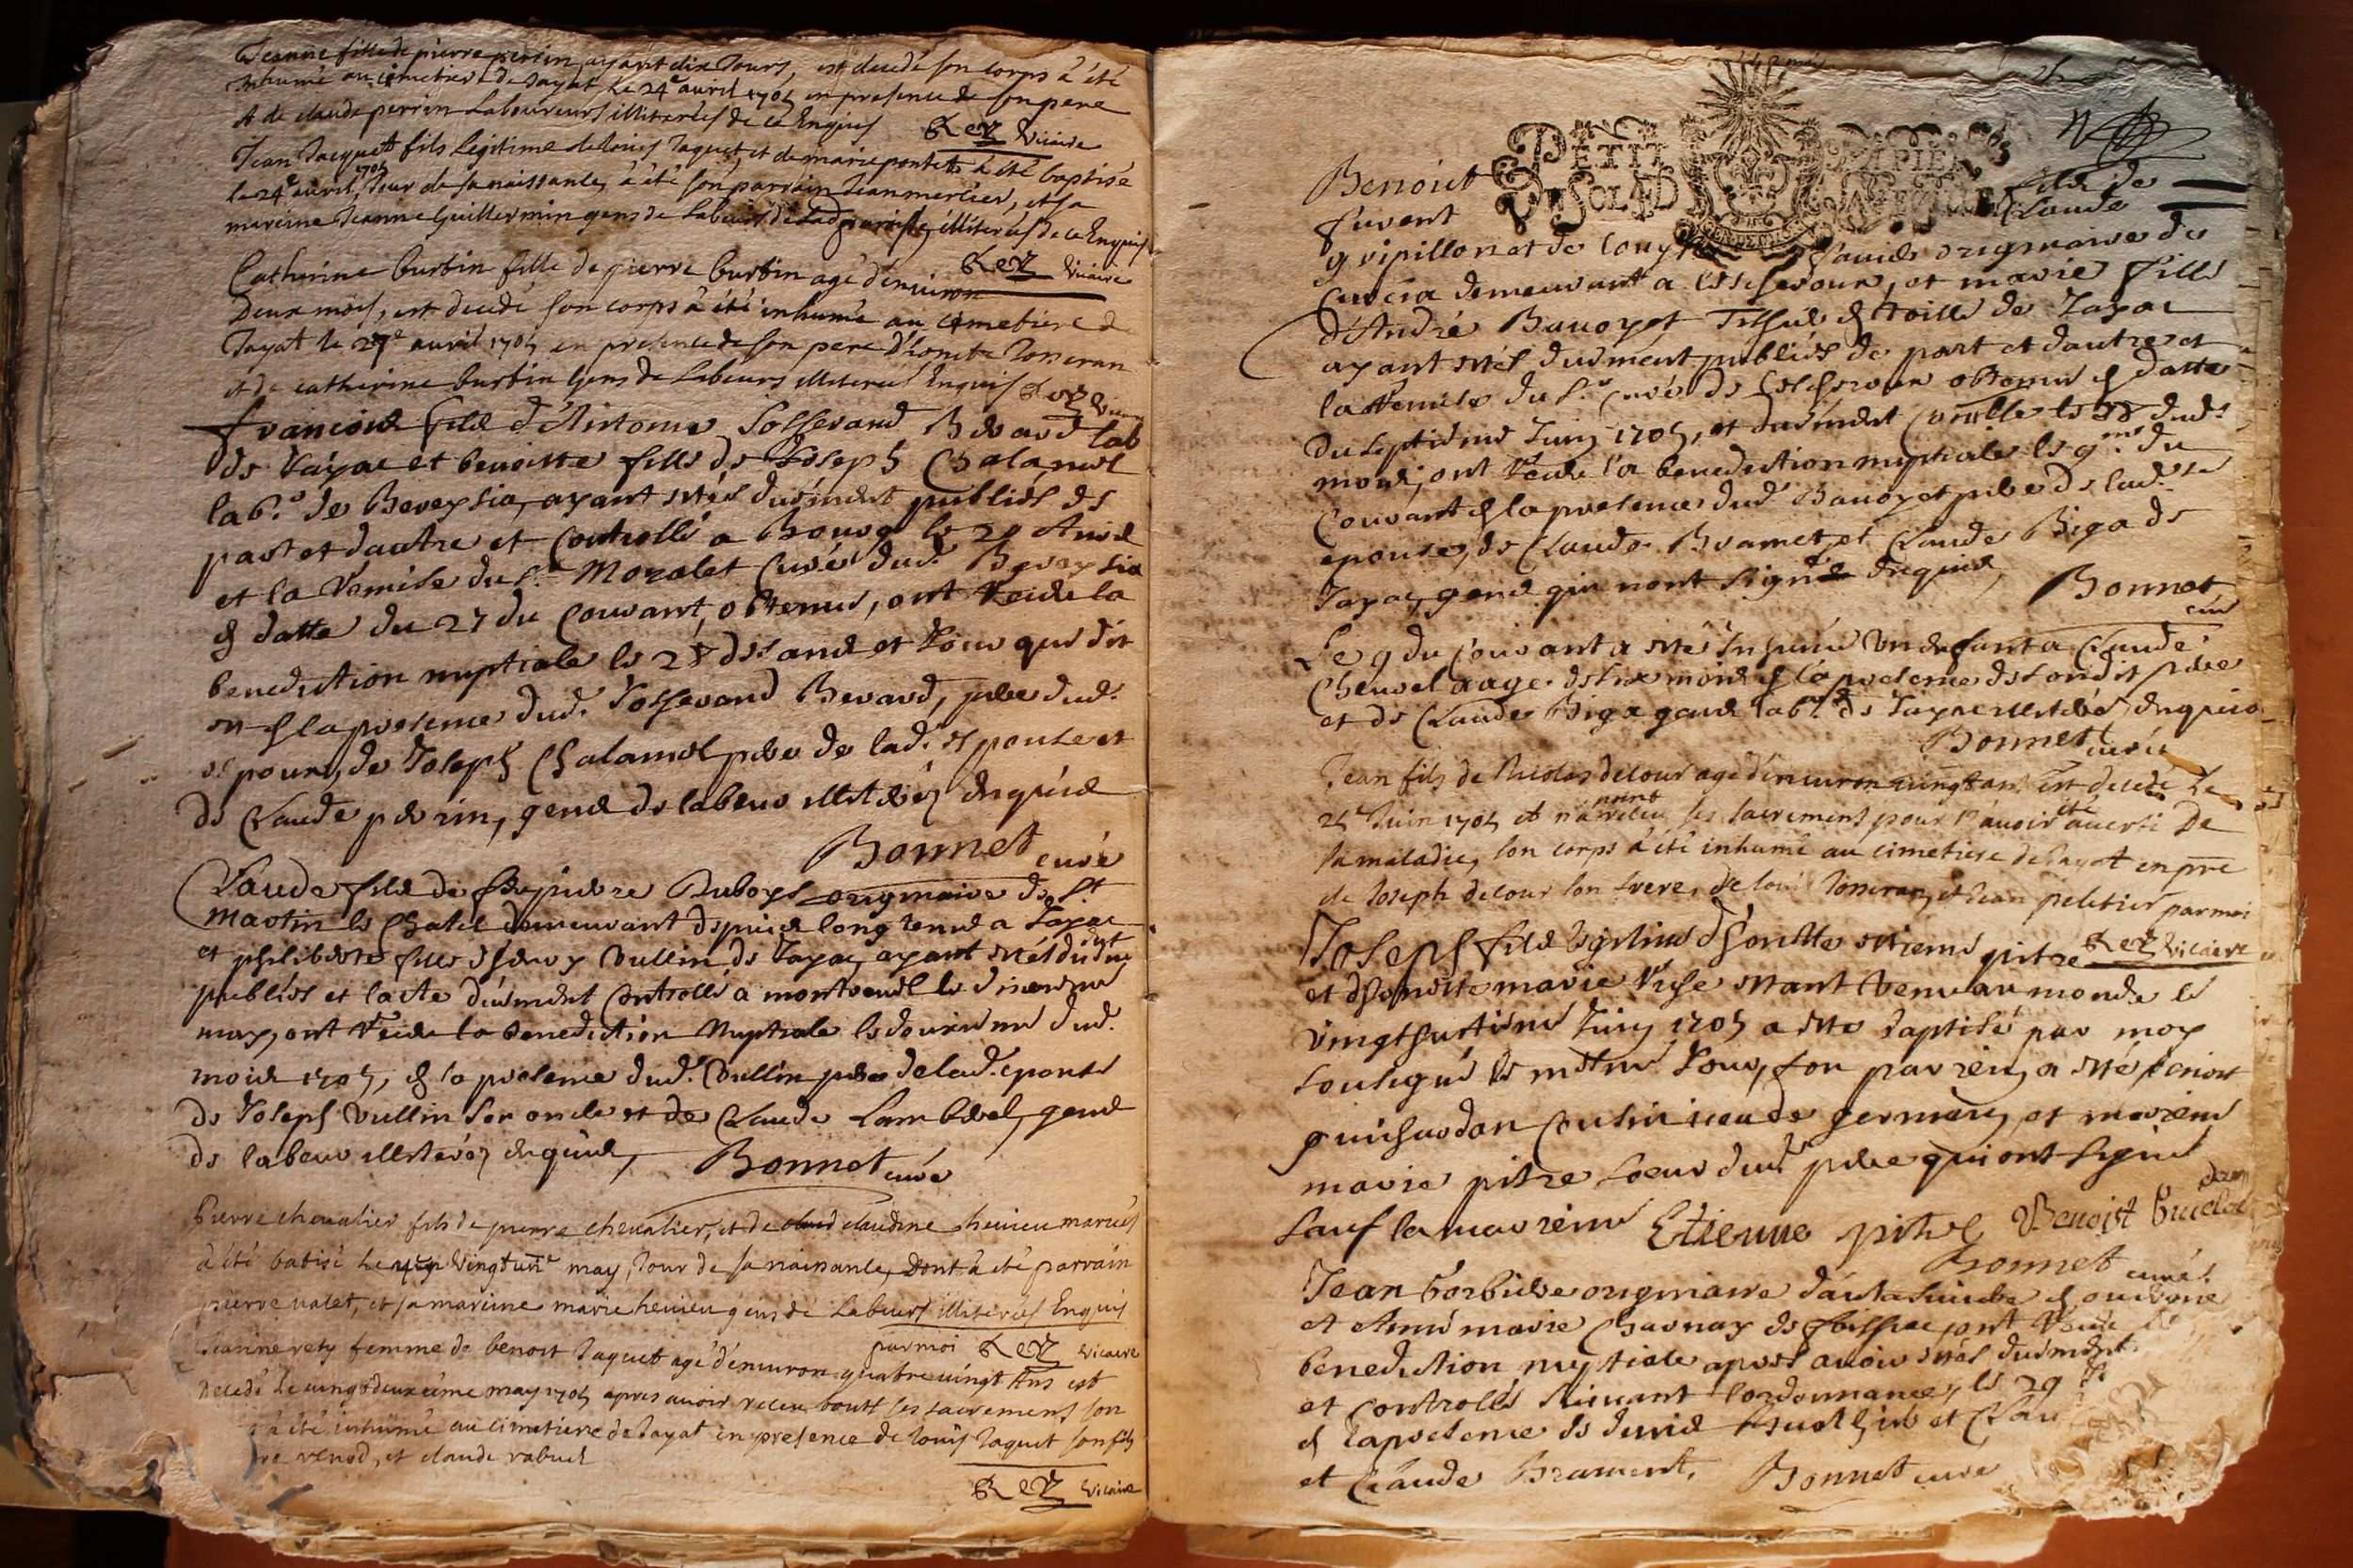 Jeanne fille de pierre perrin ayant dix Jours, est decedé son corps à été
inhumé au cimetiere de Jayat le 24e avril 1705 en presence de son pere
et de claude perrin Laboureurs illiterés de ce Enquis
Rey Vicaire
Jean Jacquet fils Légitime de louis Jaquet, et de marie pontet à été baptisé
le 24e avril 1705 Jour de sa naissance, à été son parrain Jean mercier, et sa
mareine Jeanne Guillermin gens de Labeurs de lad paroisse, illiterés de ce Enquis
Rey Vicaire
Catherine burtin fille de pierre burtin agé d'environ
Deux mois, est decedé son corps à été inhumé au cimetiere de
Jayat le 27e avril 1705 en presence de son pere d'honete Josseran
et de catherine burtin Gens de Labeurs illiterés Enquis Rey Vicaire
francois fils d'Antoine Josserand Berard lab
de Jayac et benoitte fille de Joseph Chalamel
lab.r de Bereysia, ayant étés duëment publiés de
part et dautre et Controllé a Bourg le 20 Avril
et la Remise du s.r Moralet Curé dud. Bereysia
en datte du 27 du Courant, obtenue, ont Receu la
benediction nuptiale le 28 des an et Jour que dit
en la presence dud. Josserand Berard, pere dud.
epoux, de Joseph Chalamel pere de lad. Epouse et
de Claude perrin, gens de labeur illiterés enquis
Bonnet curé
Claude fils de feu pierre Duboys originaire de St
Martin le Chatel demeurant depuis long temps a Jayac
et philiberte fille d'henry Vullin de Jayac, ayant étés duëmt
publiés et lacte duëment Controllé a montreuil le dixieme
may, ont Receu la Benediction Nuptiale le douzieme dud.
mois 1705, en la presence dud. Vullin pere de lad. epouse
de Joseph Vullin son oncle et de Claude Lambert, gens
de labeur illiterés enquis, Bonnet curé
Pierre chevalier fils de pierre chevalier, et de claudine heuieu mariés
à été batisé le vingtunme may, Jour de sa naissance, Dont à été parrain
pierre valet, et sa mareine marie heuieu gens de Labeurs illiterés Enquis
par moi Rey Vicaire
Jeanne rety femme de benoit Jaquet agé d'environ quatrevingt Ans est
Decedé le vingtdeuxieme may 1705 apres avoir receu ses sacremens son
à été inhumé au cimetiere de Jayat en presence de louis Jaquet son fils
renod, et claude rabuel
Rey Vicaire
PETIT PAPIER
Benoict fils de
Claude
gripillon et de originaire de
Cuvera demeurant a, et marie fille
d'André Bavoyet Tissier en toille de Jayac
ayant étés duëment publiés de part et dautre et
la Remise du s.r Curé de obtenue en datte
du septieme Juin 1705, et duëment Controllé le dud.
mois, ont Receu la benediction nuptiale le 9me du
Courant en la presence dud. Bavoyet pere de lad.
epouse, de Claude Bramet, et Claude Biga de
Jayac, gens qui nont signé enquis,
Bonnet
curé
Le 9 du Courant a été Inhumé Un enfant a Claude
Cheurel aagé de six mois en la presence de sondit pere
et de Claude Biga gens lab.rs de Jayac illiterés enquis
Bonnet curé
Jean fils de Nicolas delour agé d'environ vingt ans est decedé le
25 Juin 1705 et n'a point receu ses sacremens pour n'avoir été averti De
sa maladie, son corps à été inhumé au cimetiere de Jayat en pre
de Joseph delour son frere, de louis Josseran, et Jean peletier par moi
Rey Vicaire
Joseph fils legitime d'honette etienne pitre
et d'honeste marie estant venu au monde le
Vingthuitieme Juin 1705 a été baptisé par moy
soussigné le mesme Jour, son parrein a été benoit
guichardan Cousin issu de germain, et mareine
marie pitre soeur dud. pere qui ont signé
sauf la mareine Etienne pitre Benoist
Bonnet curé
Jean originaire en auvergne
et Anne marie Charnay de foissiac, ont Receu la
benediction nuptiale apres avoir étés duëment
et Controllés suivant lordonnance, le 29
en la presence de et Clau
et Claude Brament, Bonnet curé